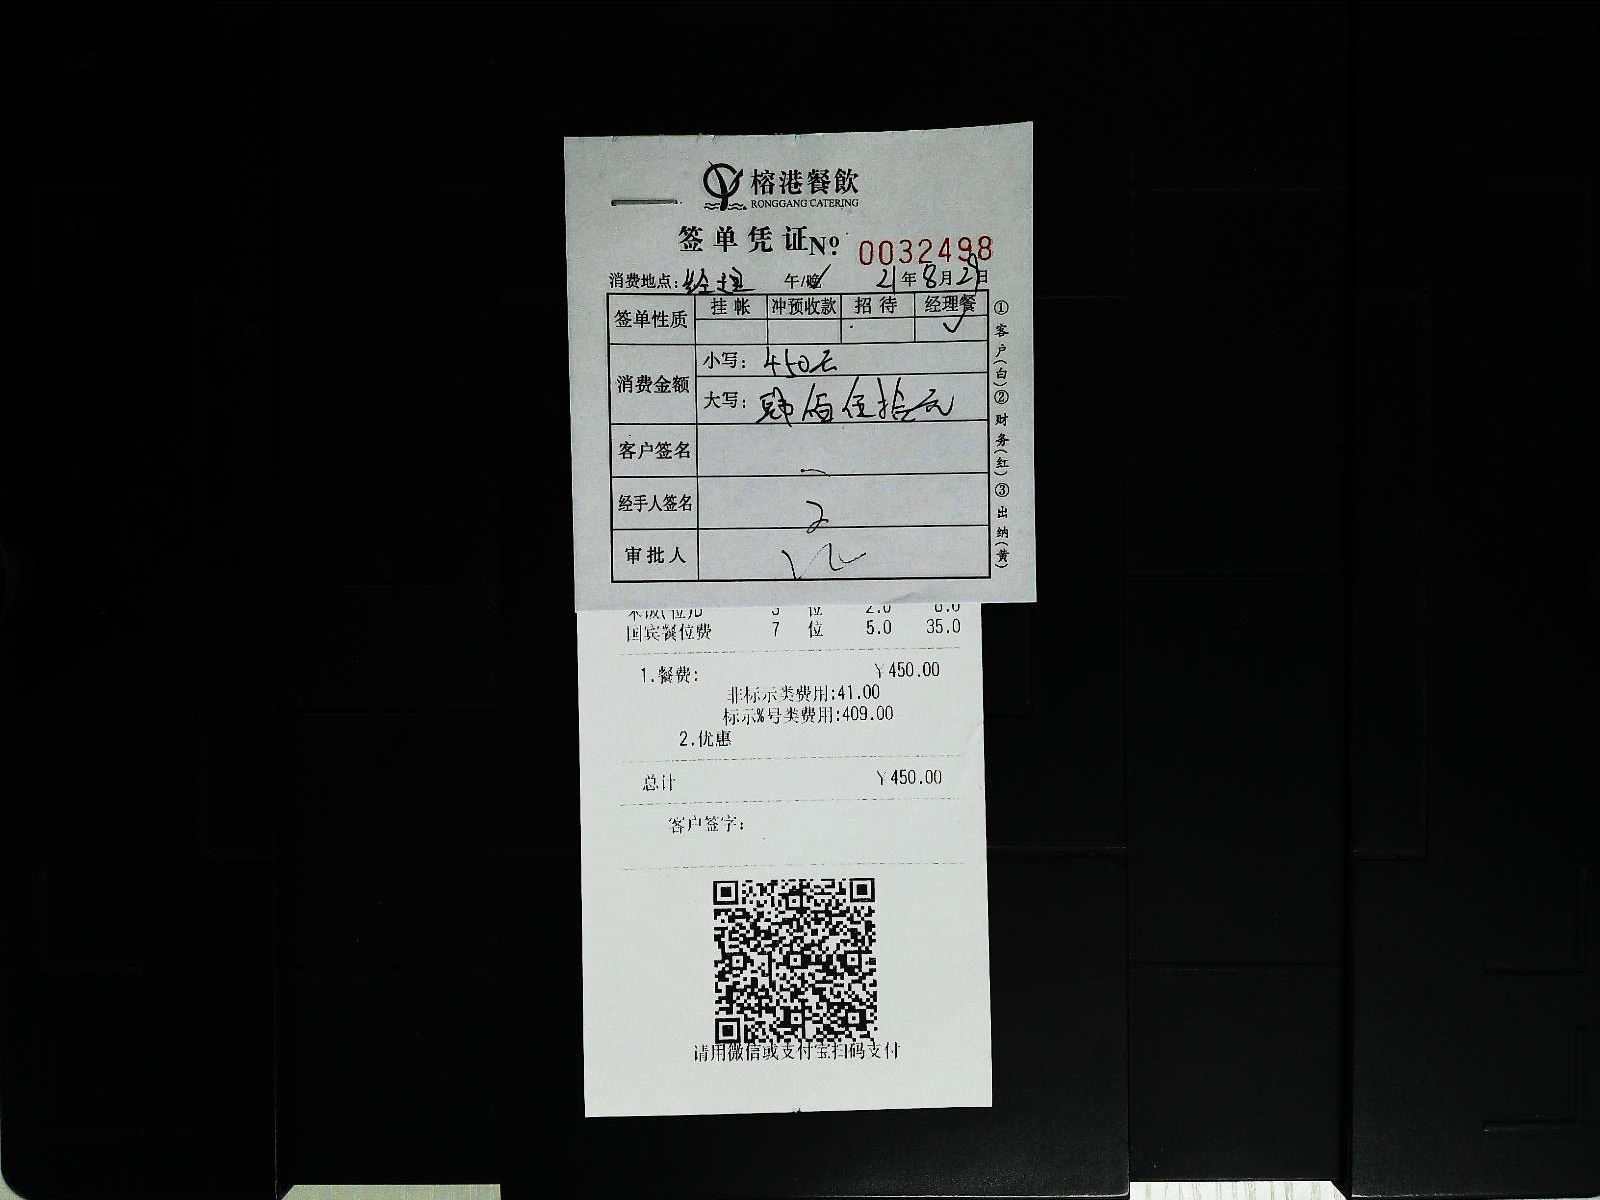 榕港餐飲
RONGGANG CATERING
签单凭证 No. 0032498
消费地点: 经理 午/晚 21年8月29日
签单性质 挂帐 冲预收款 招待 经理餐
✓
消费金额
小写: 450元
大写: 肆佰伍拾元
客户签名
经手人签名
审批人
①客户(白)②财务(红)③出纳(黄)
国宾餐位费 7 位 5.0 35.0
1.餐费: ¥450.00
非标示类费用:41.00
标示%号类费用:409.00
2.优惠
总计 ¥450.00
客户签字:
请用微信或支付宝扫码支付